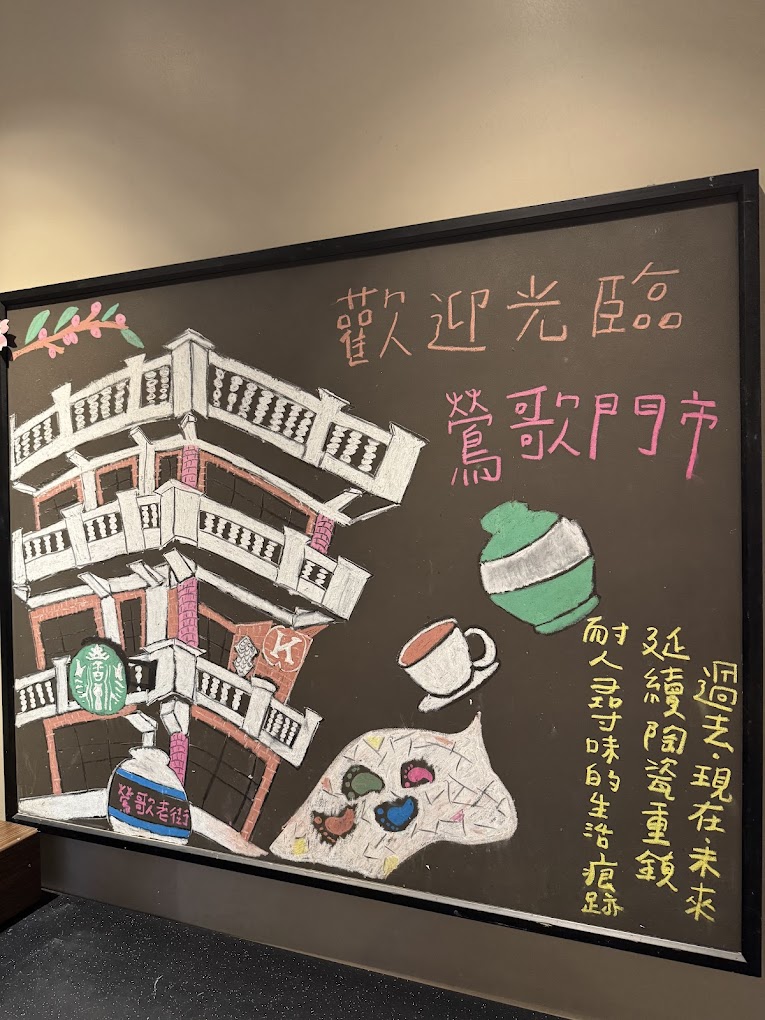 歡迎光臨
鶯歌門市
過去·現在·未來
延續陶瓷重鎮
耐人尋味的生活痕跡
K
鶯歌老街